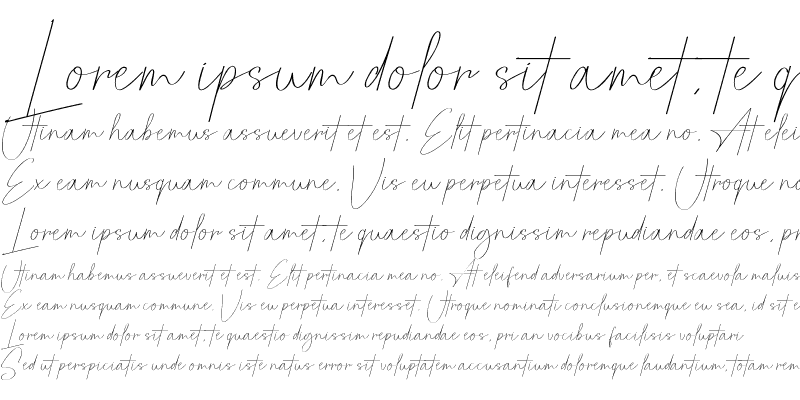 Lorem ipsum dolor sit amet, te q
Utinam habemus assueverit et est. Elit pertinacia mea no. At elei
Ex eam nusquam commune. Vis eu perpetua interesset. Utroque no
Lorem ipsum dolor sit amet, te quaestio dignissim repudiandae eos, pri
Utinam habemus assueverit et est. Elit pertinacia mea no. At eleifend adversarium per, et scaevola maluis
Ex eam nusquam commune. Vis eu perpetua interesset. Utroque nominati conclusionemque eu sea, id sit e
Lorem ipsum dolor sit amet, te quaestio dignissim repudiandae eos, pri an vocibus facilisis voluptari
Sed ut perspiciatis unde omnis iste natus error sit voluptatem accusantium doloremque laudantium, totam rem